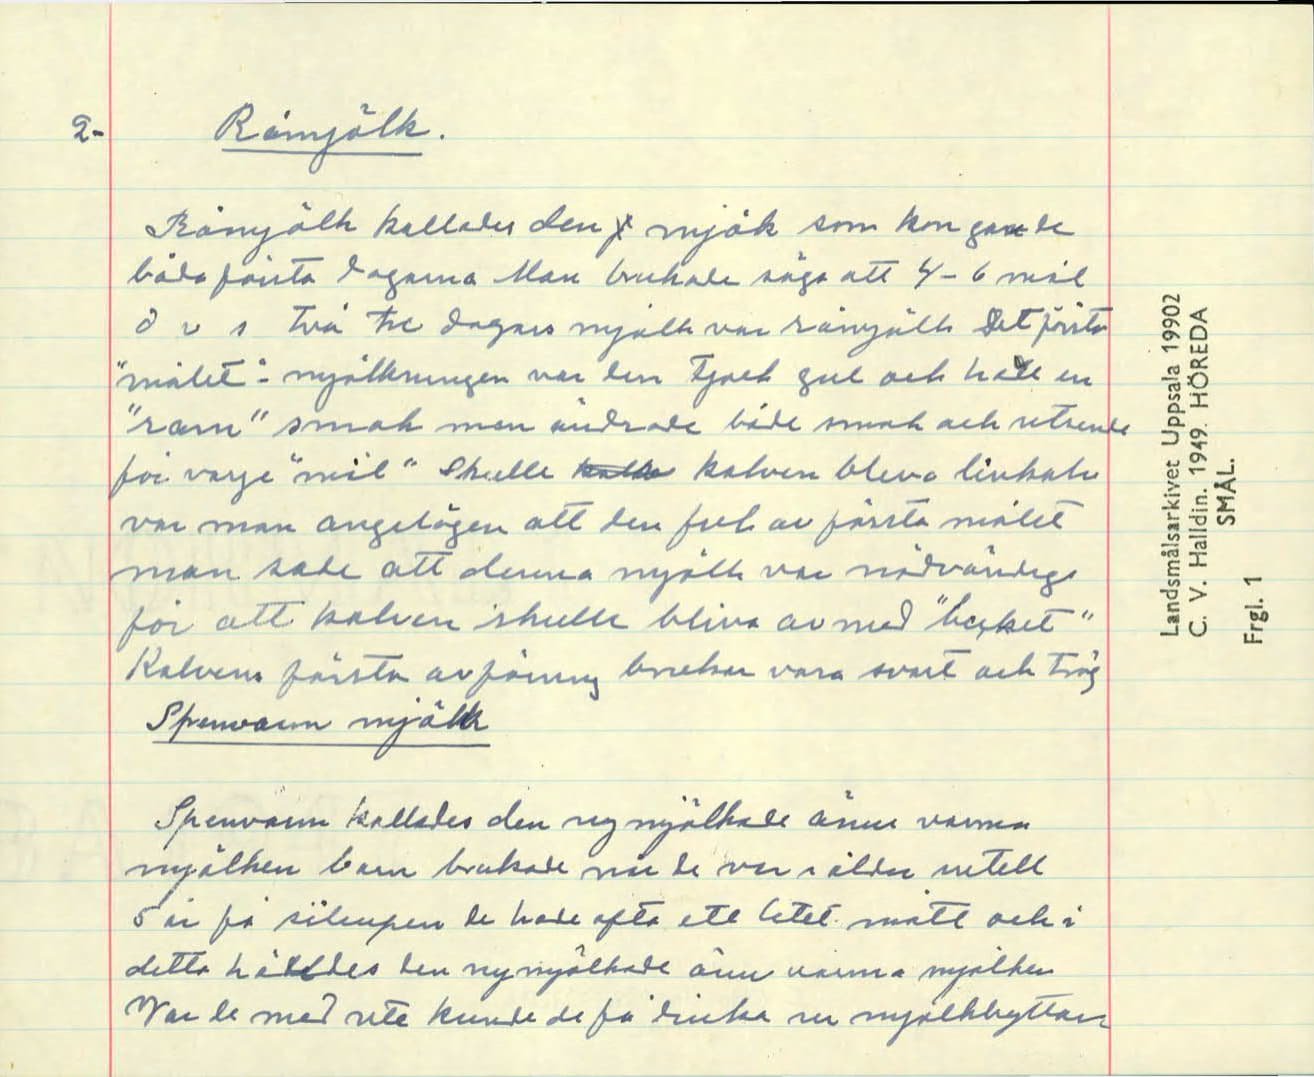 2-
Råmjölk.
Råmjölk kallades den mjök som kon gav de
båda första dagarna Man brukade säga att 4-6 mål
d v s två tre dagars mjölk var råmjölk Det första
"målet"- mjölkningen var den tjock gul och hade en
"ram" smak men ändrade både smak och utseende
för varje "mål" Skulle kalven bleva livkale
var man angelägen att den fick av första målet
man sade att denna mjölk var nödvändig
för att kalven skulle bliva av med "becket"
Kalvens första avföring brukar vara svart och trög
Spenvarm mjölk
Spenvarm kallades den ny mjölkade ännu varma
mjölken barn brukade när de var i ålder uptill
5 år få silupen de hade ofta ett litet mått och i
detta hälldes den ny mjölkade ännu varma mjölken
War de med ute kunde de få dricka ur mjölkbyttan
Landsmålsarkivet Uppsala 19902
C. V. Halldin. 1949. HÖREDA
SMÅL.
Frgl. 1